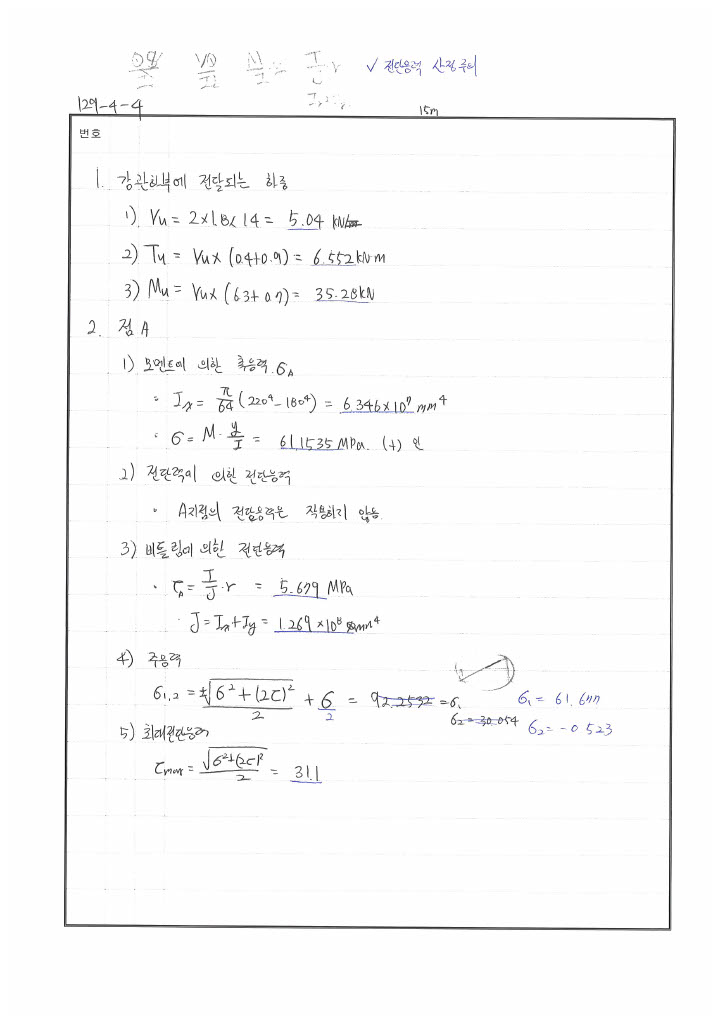 ✓ 전단응력 산정주의
129-4-4
15m
번호
1. 강관하부에 전달되는 하중
1) Vu = 2×1.8×1.4 = 5.04 kN
2) Tu = Vu× (0.4+0.9) = 6.552 kN·m
3) Mu = Vu× (6.3+0.7) = 35.28 kN
2. 점 A
1) 모멘트에 의한 축응력 σA
· Ix = π/64 (220⁴-180⁴) = 6.346×10⁷ mm⁴
· σ = M·y/I = 61.1535 MPa. (+) 인
2) 전단력에 의한 전단응력
· A지점의 전단응력은 작용하지 않음
3) 비틀림에 의한 전단응력
· τA = T/J·r = 5.679 MPa
· J = Ix+Iy = 1.269 ×10⁸ mm⁴
4) 주응력
σ1,2 = ±√(σ²+(2τ)²)/2 + σ/2 = 92.2532 = σ1
σ2 = -30.054
σ1 = 61.677
σ2 = -0.523
5) 최대전단응력
τmax = √(σ²+(2τ)²)/2 = 31.1